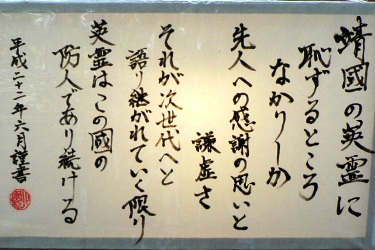 靖國の英霊に
恥ずるところ
なかりしか
先人への感謝の思いと
謙虚さ
それが次世代へと
語り継がれていく限り
英霊はこの國の
防人であり続ける
平成二十二年六月謹書